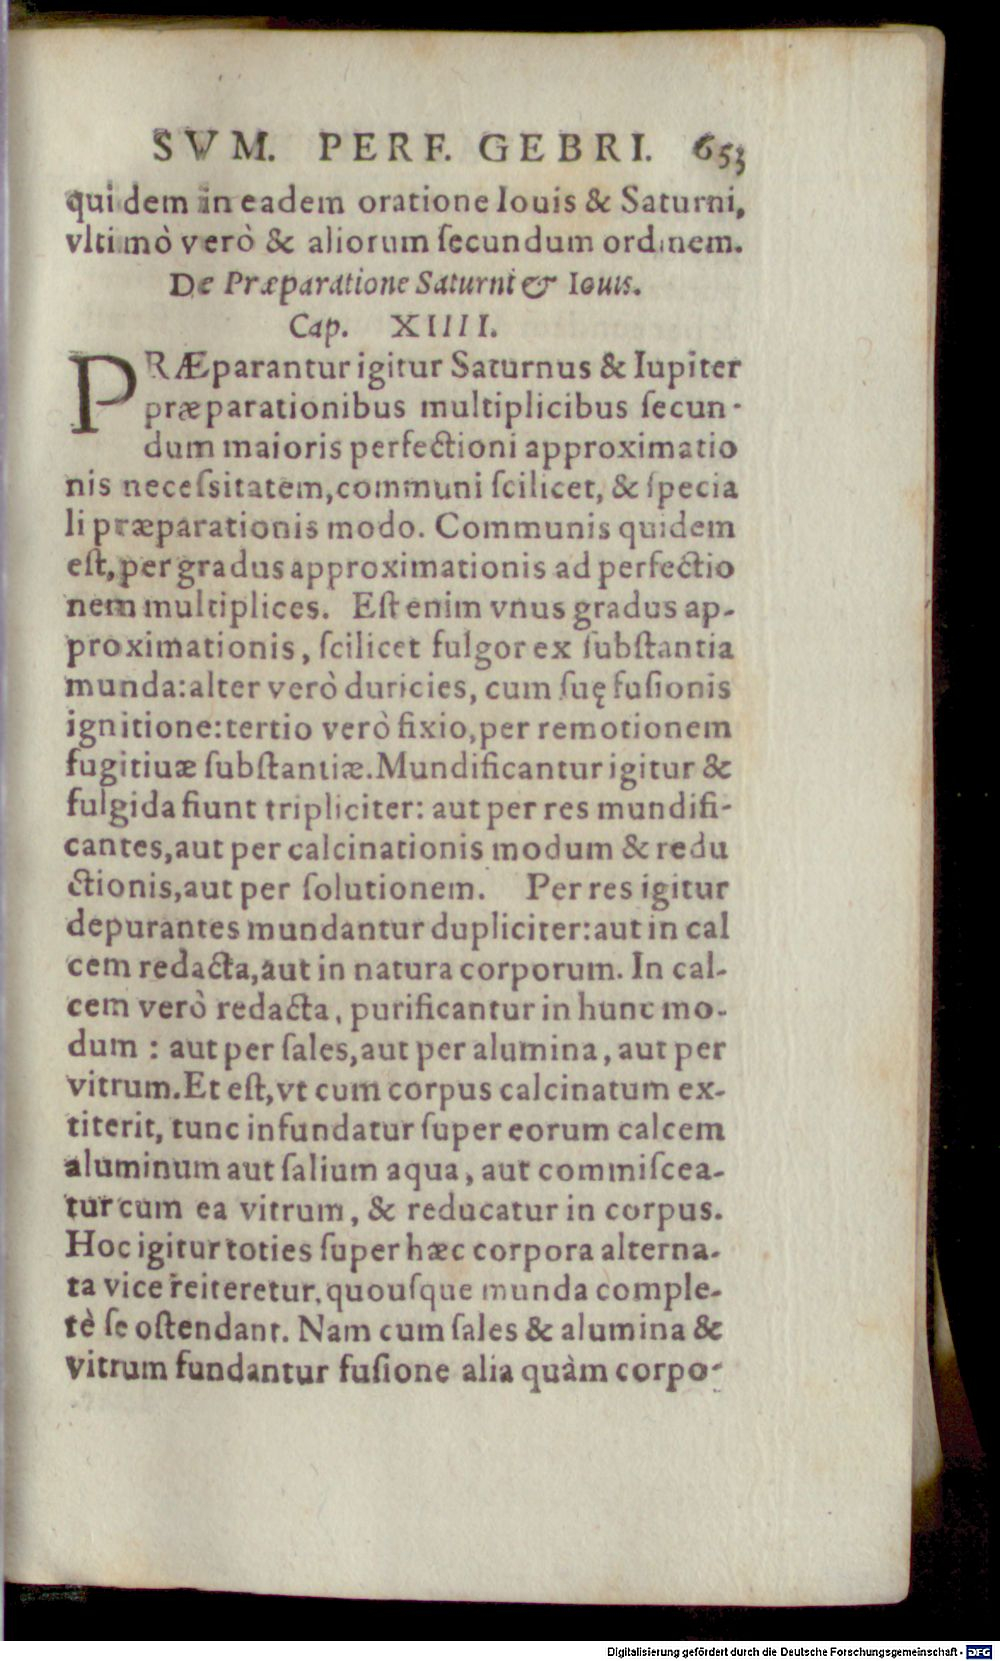 SVM. PERF. GEBRI. 653
quidem in eadem oratione Iouis & Saturni,
vltimò verò & aliorum ſecundum ordinem.
De Præparatione Saturni & Iouis.
Cap. XIIII.
PRÆparantur igitur Saturnus & Iupiter
præparationibus multiplicibus ſecun-
dum maioris perfectioni approximatio
nis neceſsitatem, communi ſcilicet, & ſpecia
li præparationis modo. Communis quidem
eſt, per gradus approximationis ad perfectio
nem multiplices. Eſt enim vnus gradus ap-
proximationis, ſcilicet fulgor ex ſubſtantia
munda: alter verò duricies, cum ſuę fuſionis
ignitione: tertio verò fixio, per remotionem
fugitiuæ ſubſtantiæ. Mundificantur igitur &
fulgida fiunt tripliciter: aut per res mundifi-
cantes, aut per calcinationis modum & redu
ctionis, aut per ſolutionem. Per res igitur
depurantes mundantur dupliciter: aut in cal
cem redacta, aut in natura corporum. In cal-
cem verò redacta, purificantur in hunc mo-
dum : aut per ſales, aut per alumina, aut per
vitrum. Et eſt, vt cum corpus calcinatum ex-
titerit, tunc infundatur ſuper eorum calcem
aluminum aut ſalium aqua, aut commiſcea-
tur cum ea vitrum, & reducatur in corpus.
Hoc igitur toties ſuper hæc corpora alterna-
ta vice reiteretur, quouſque munda comple-
tè ſe oſtendant. Nam cum ſales & alumina &
vitrum fundantur fuſione alia quàm corpo-
Digitalisierung gefördert durch die Deutsche Forschungsgemeinschaft - DFG